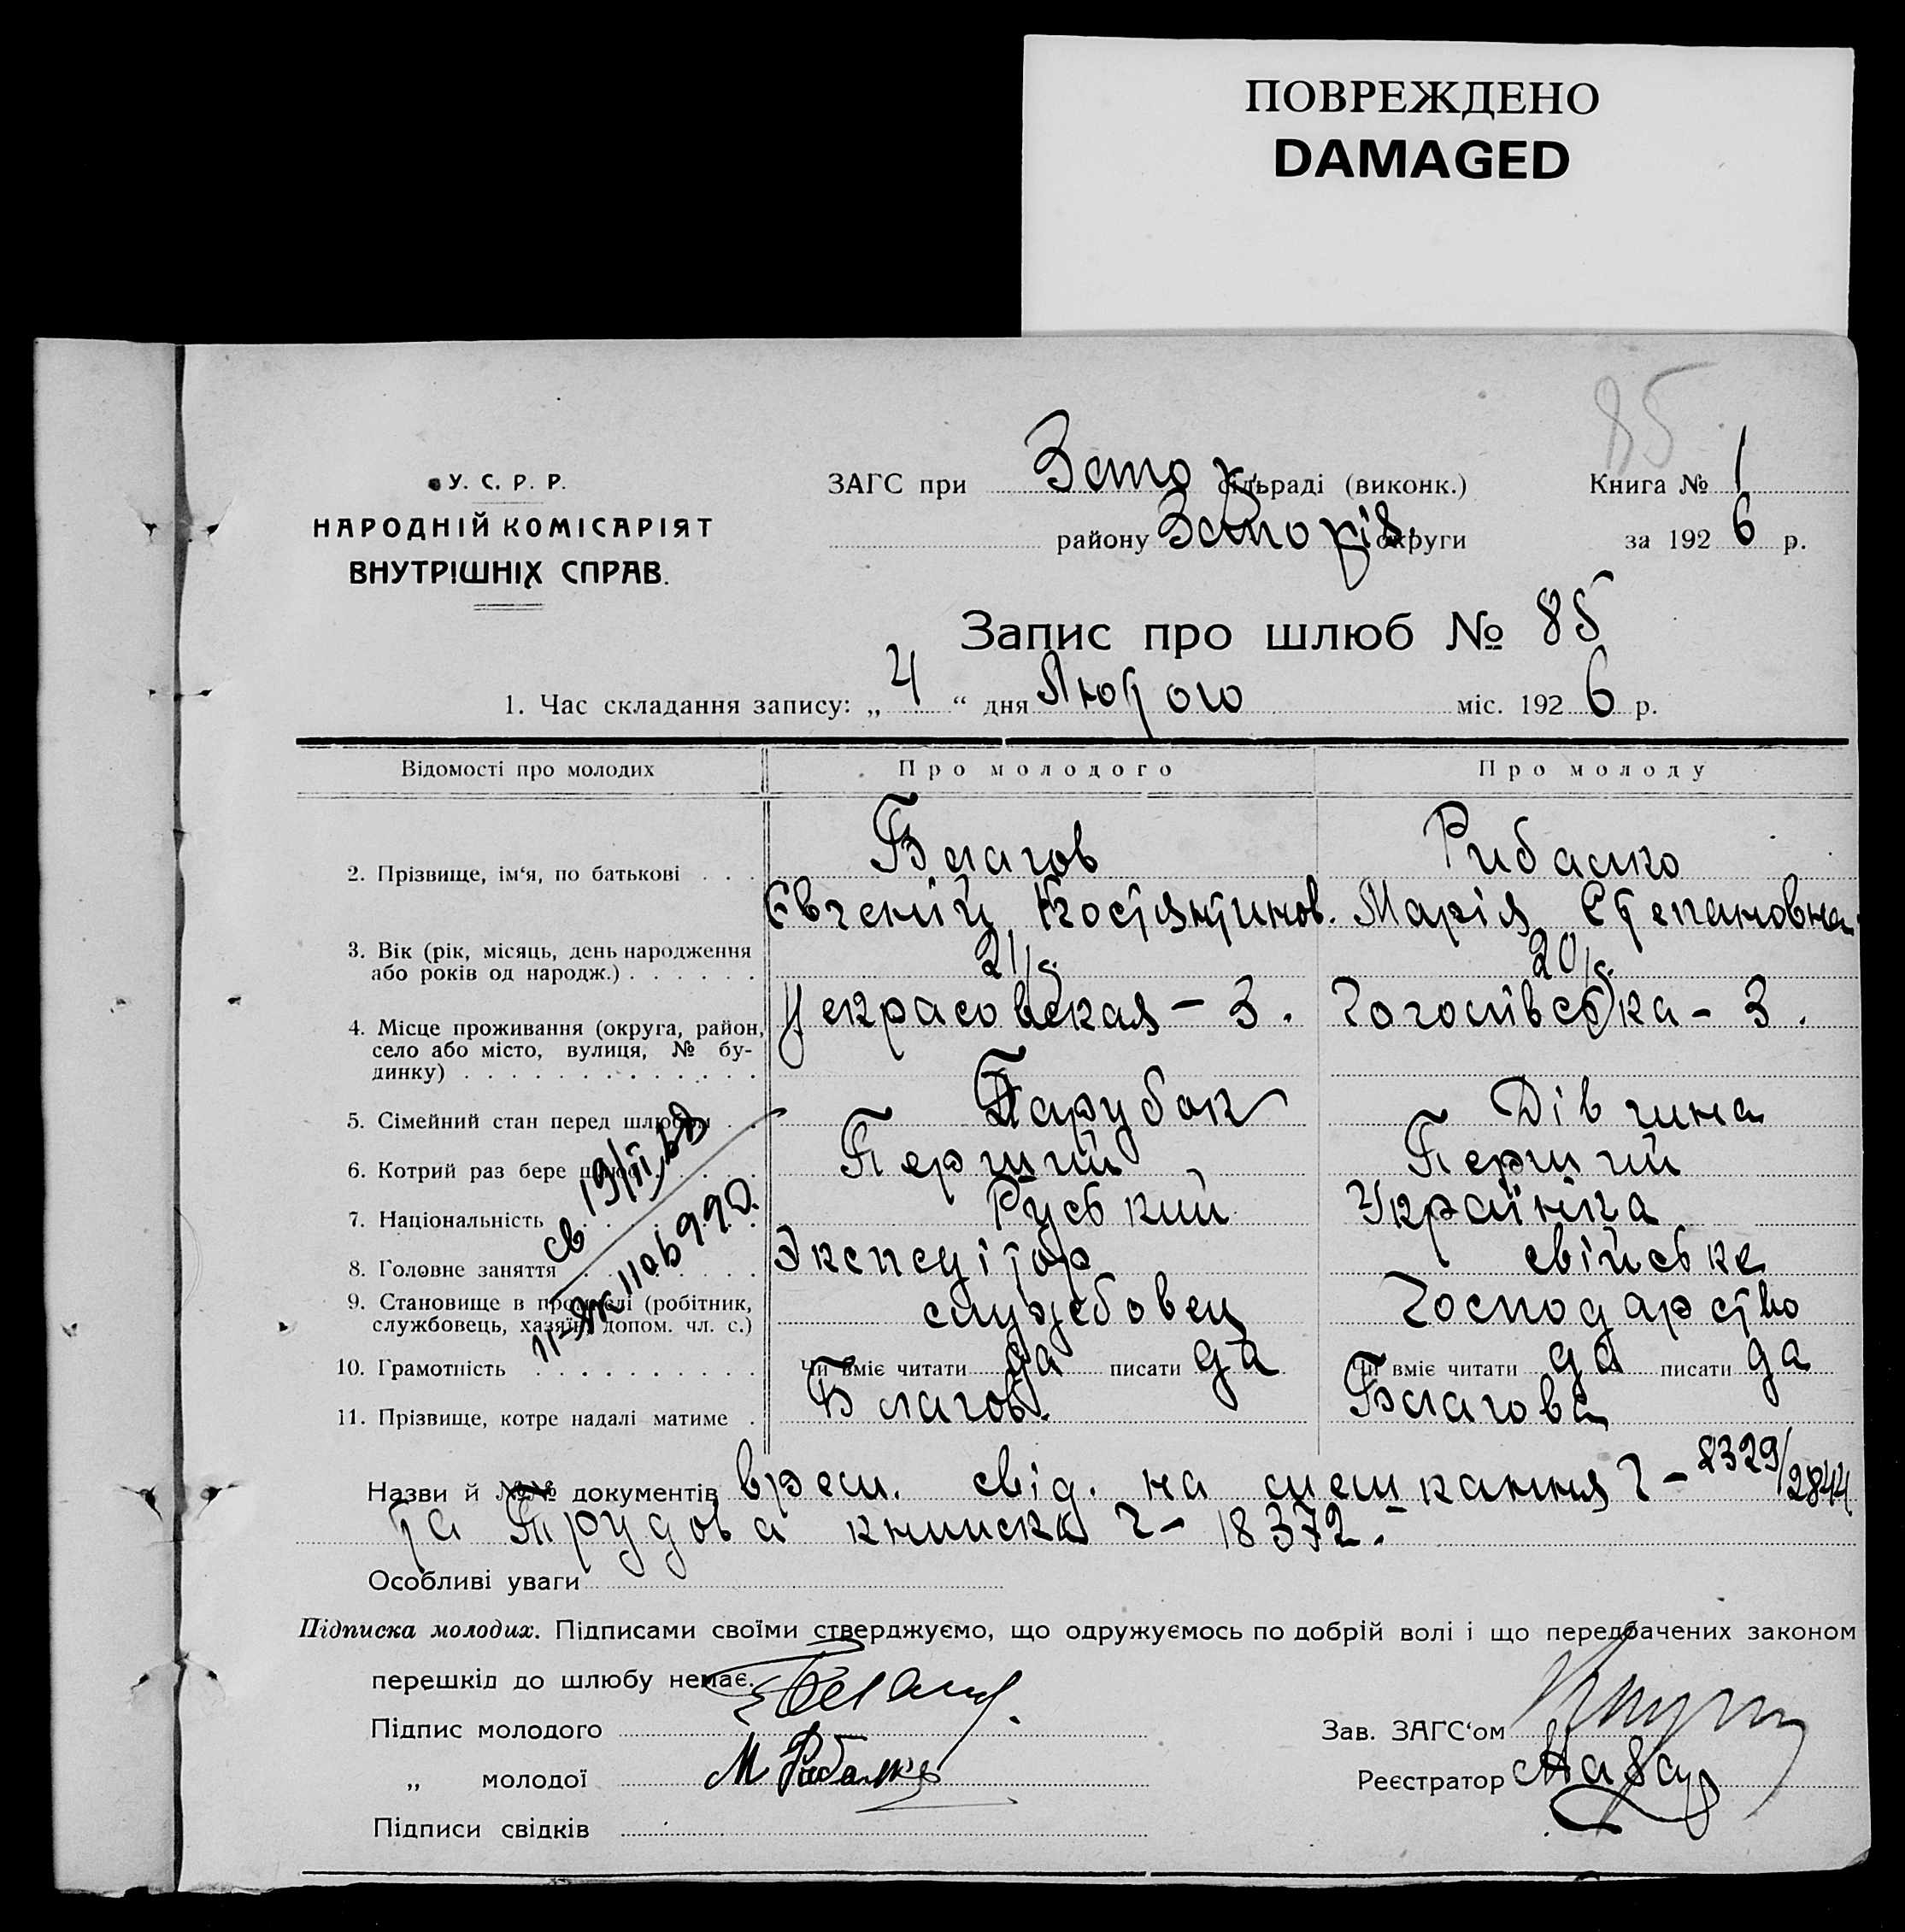 ПОВРЕЖДЕНО
DAMAGED
85
У. С. Р. Р.
НАРОДНІЙ КОМІСАРІЯТ
ВНУТРІШНІХ СПРАВ.
ЗАГС при Запо сільраді (виконк.) Книга № 1
району Запоріз. округи за 1926 р.
Запис про шлюб № 85
1. Час складання запису: „ 4 “ дня Лютого міс. 1926 р.
Відомості про молодих Про молодого Про молоду
2. Прізвище, ім‘я, по батькові . . . Благов Рибалко
Євгеній Костянтинов. Марія Степановна
3. Вік (рік, місяць, день народження
або років од народж.) . . . . . . 21 20
4. Місце проживання (округа, район, село або місто, вулиця, № бу-
динку) . . . . . . . . . . . . . Некрасовская – 3. Гоголівська – 3.
5. Сімейний стан перед шлюбом . . Парубок Дівчина
6. Котрий раз бере шлюб . . . . Перший Перший
7. Національність . . . . . . Руський Українка
8. Головне заняття . . . . . . Экспедітор свійське
9. Становище в промислі (робітник,
службовець, хазяїн, допом. чл. с.) службовец Господарство
10. Грамотність . . . . . . . . . . Чи вміє читати да писати да Чи вміє читати да писати да
11. Прізвище, котре надалі матиме . Благов. Благова
Назви й №№ документів врем. свід. на мешкання Ч – 8329/2844
та Трудова книжка Ч – 18372. –
Особливі уваги
Підписка молодих. Підписами своїми стверджуємо, що одружуємось по добрій волі і що передбачених законом
перешкід до шлюбу немає.
Підпис молодого
Зав. ЗАГС‘ом
„ молодої М Рибалко
Реєстратор
Підписи свідків